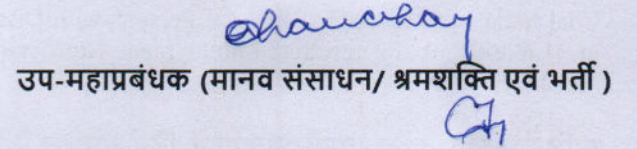 उप-महाप्रबंधक (मानव संसाधन/ श्रमशक्ति एवं भर्ती )